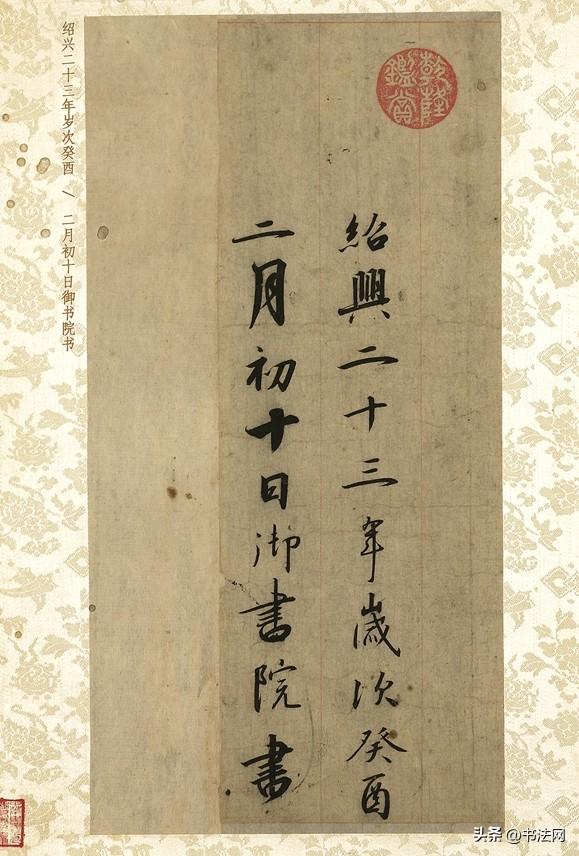 紹興二十三年歲次癸酉
二月初十日御書院書
乾隆
鑑賞
绍兴二十三年岁次癸酉 / 二月初十日御书院书
头条 @书法网